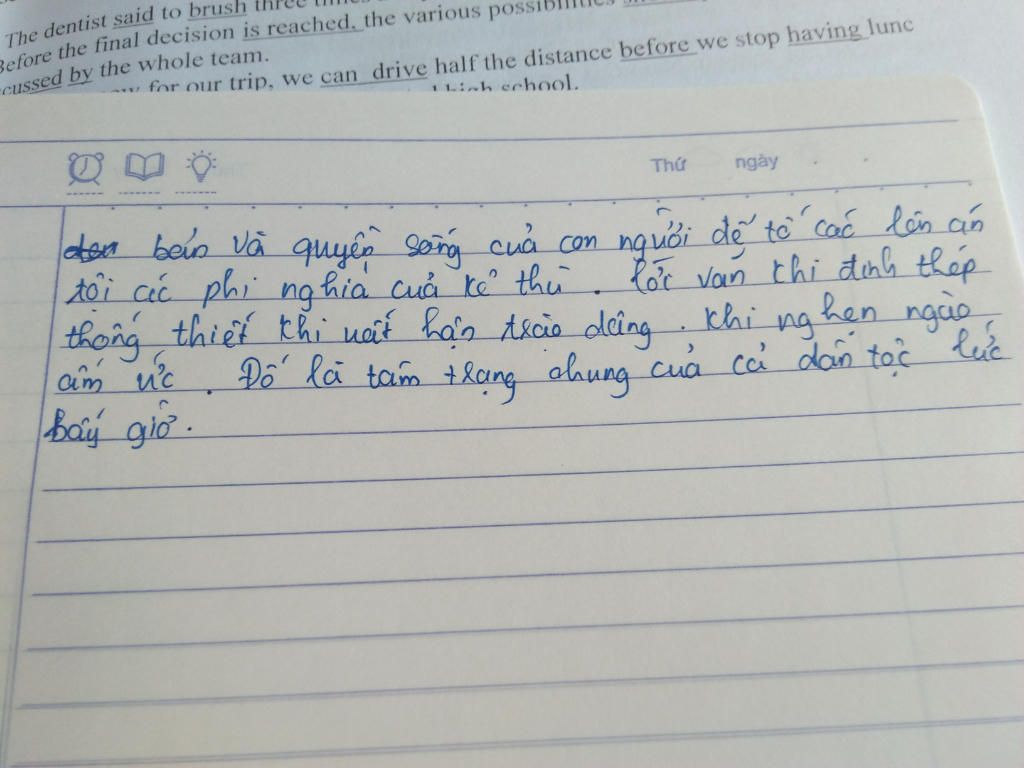 The dentist said to brush three times
Before the final decision is reached, the various possibilities
cussed by the whole team.
for our trip, we can drive half the distance before we stop having lunc
high school.
Thứ ngày
bến và quyền sống của con người để tố các lên án
tội các phi nghiã của kẻ thù. lời văn khi đinh thép
thống thiết khi uất hận trào dâng. khi nghẹn ngào
ấm ức. Đó là tâm trạng chung của cả dân tộc lúc
bấy giờ.